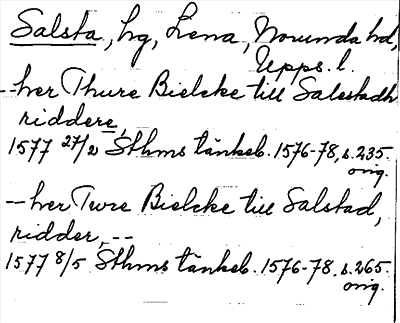 Salsta, hg, Lena, Norunda hd,
Upps. l.
--her Thure Bielcke till Salestadh
riddere,
1577 27/2 Sthms tänkeb. 1576-78, s. 235.
orig.
-- her Twre Bielcke till Salstad,
ridder, --
1577 8/5 Sthms tänkeb. 1576-78. s. 265.
orig.